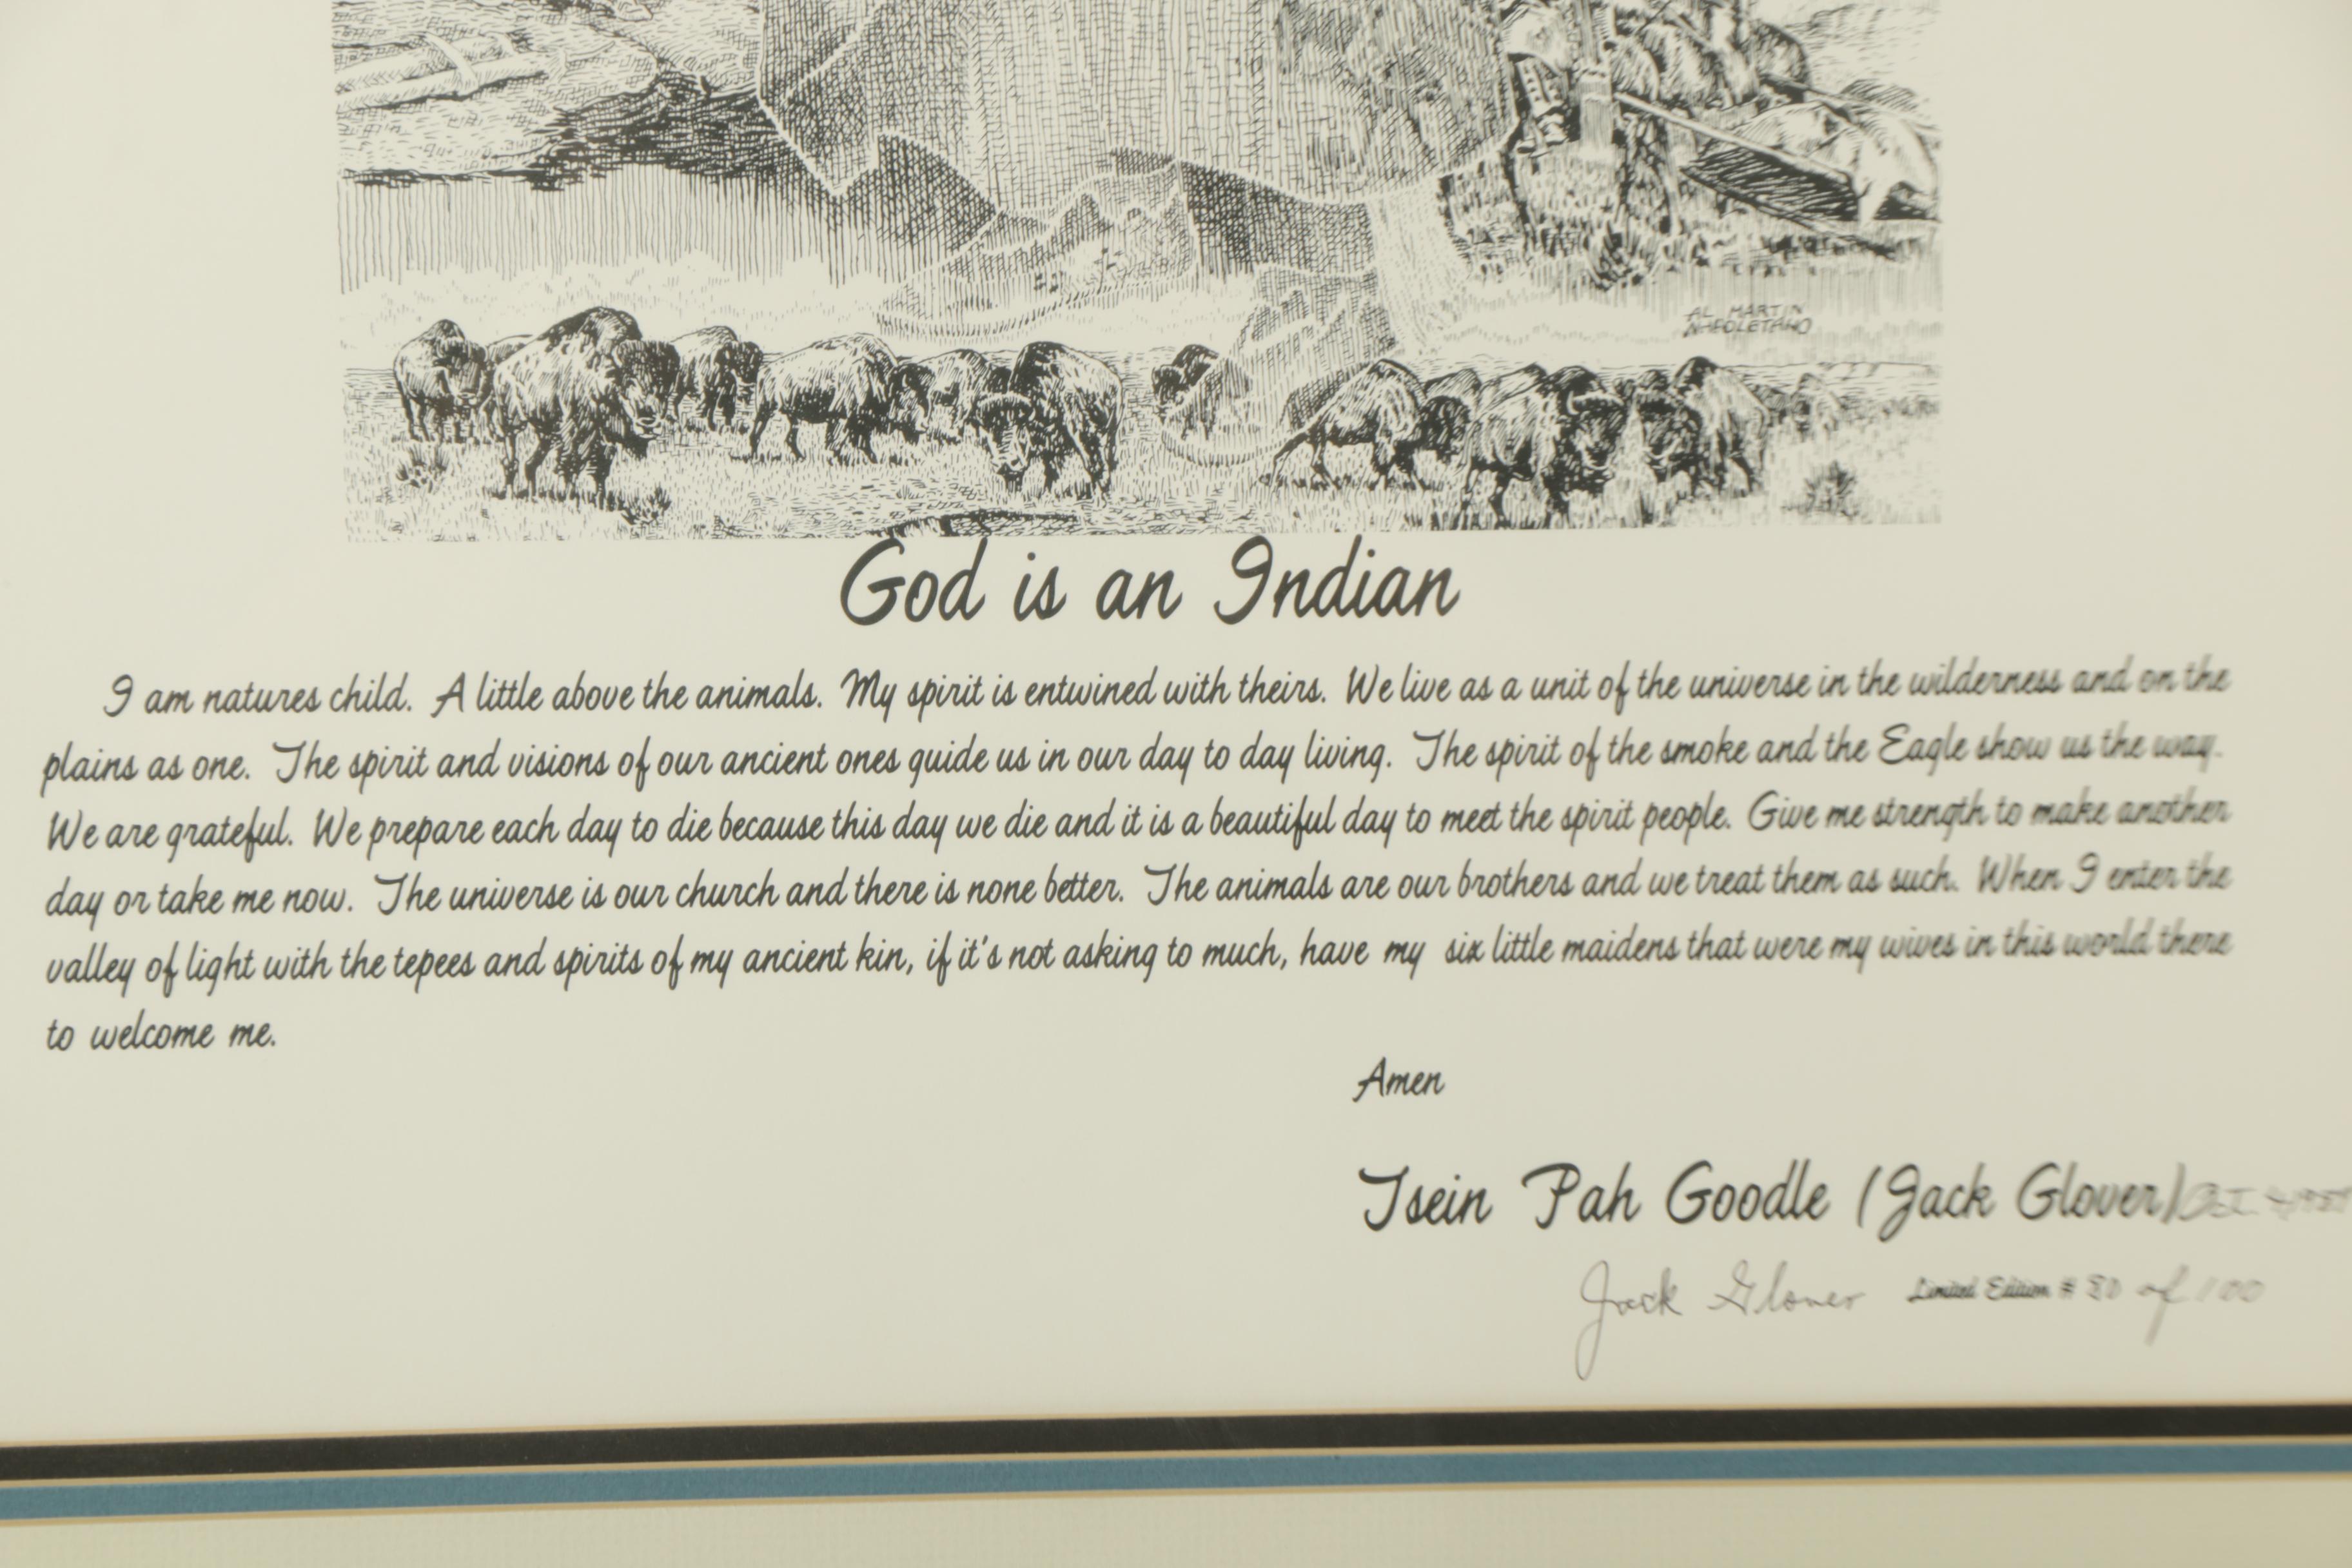 AL MARTIN
NAPOLETANO
God is an Indian
I am natures child. A little above the animals. My spirit is entwined with theirs. We live as a unit of the universe in the wilderness and on the
plains as one. The spirit and visions of our ancient ones guide us in our day to day living. The spirit of the smoke and the Eagle show us the way.
We are grateful. We prepare each day to die because this day we die and it is a beautiful day to meet the spirit people. Give me strength to make another
day or take me now. The universe is our church and there is none better. The animals are our brothers and we treat them as such. When I enter the
valley of light with the tepees and spirits of my ancient kin, if it's not asking to much, have my six little maidens that were my wives in this world there
to welcome me.
Amen
Tsein Pah Goodle (Jack Glover)
Jack Glover Limited Edition # 80 of 100